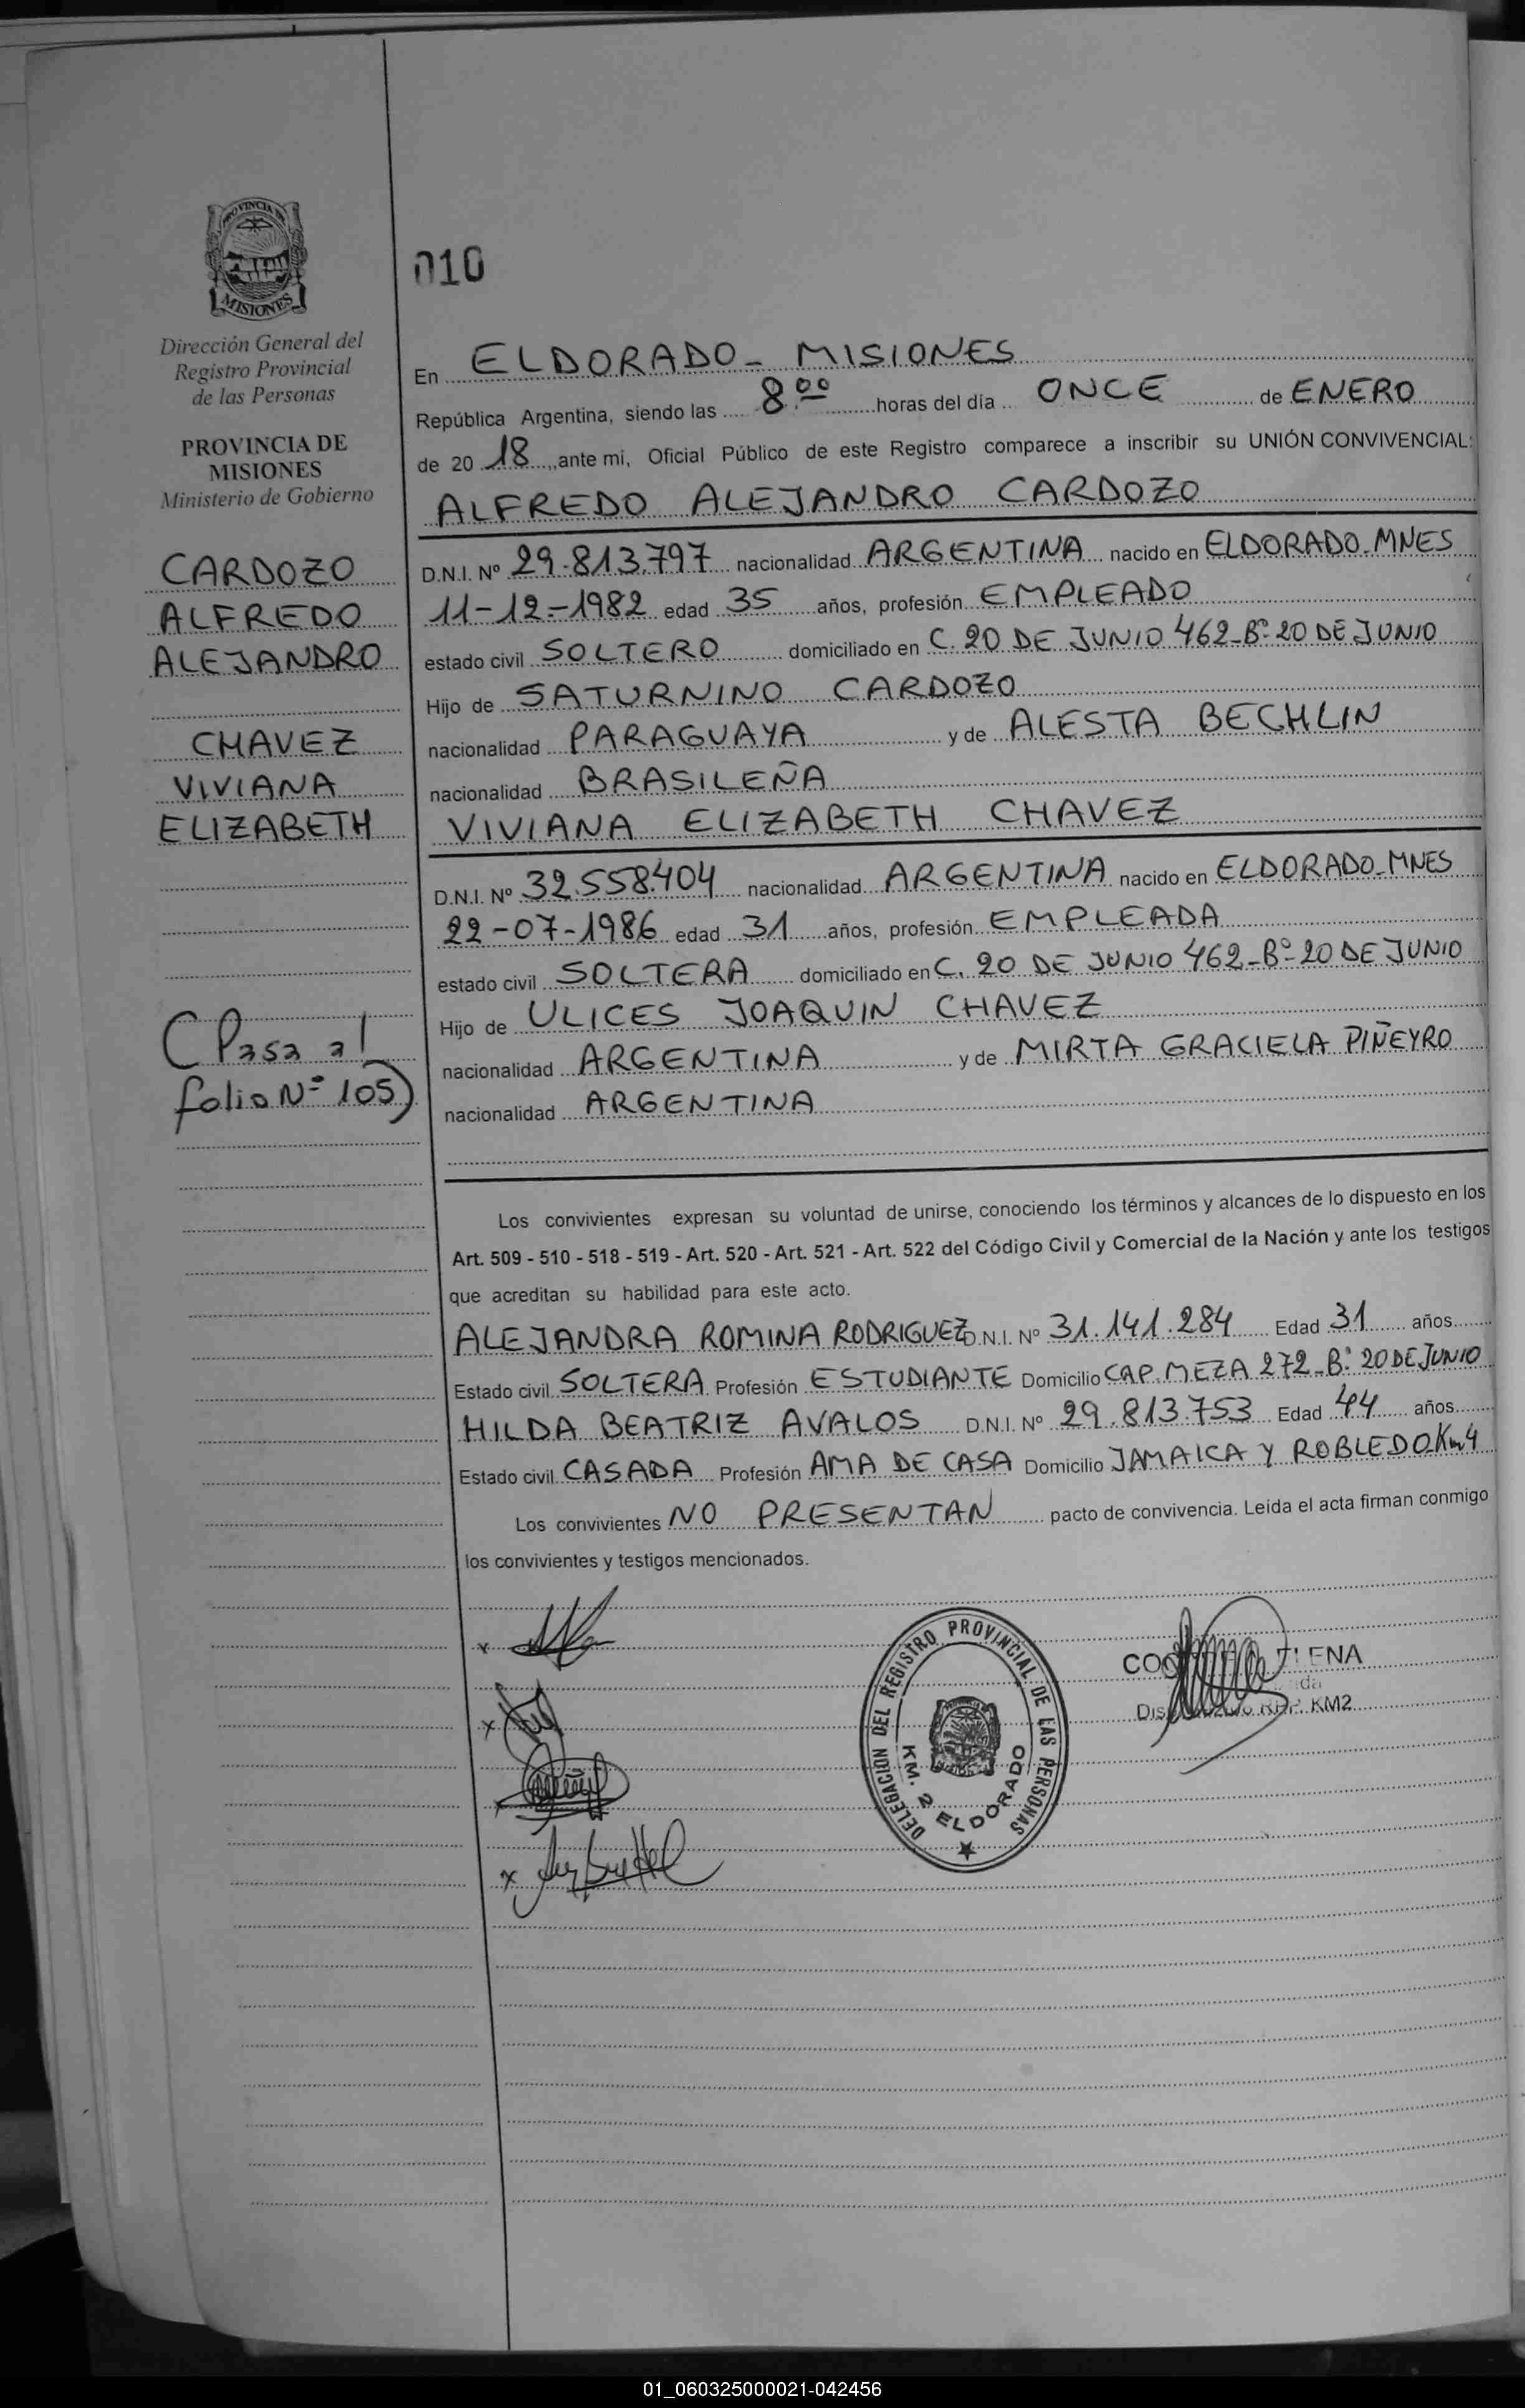 PROVINCIA DE
MISIONES
Dirección General del
Registro Provincial
de las Personas
PROVINCIA DE
MISIONES
Ministerio de Gobierno
CARDOZO
ALFREDO
ALEJANDRO
CHAVEZ
VIVIANA
ELIZABETH
(Pasa al
folio Nº 105)
010
En ELDORADO - MISIONES
República Argentina, siendo las 8:00 horas del día ONCE de ENERO
de 20 18, ante mi, Oficial Público de este Registro comparece a inscribir su UNIÓN CONVIVENCIAL:
ALFREDO ALEJANDRO CARDOZO
D.N.I. Nº 29.813.797 nacionalidad ARGENTINA nacido en ELDORADO-MNES
11-12-1982 edad 35 años, profesión EMPLEADO
estado civil SOLTERO domiciliado en C. 20 DE JUNIO 462-Bº-20 DE JUNIO
Hijo de SATURNINO CARDOZO
nacionalidad PARAGUAYA y de ALESTA BECHLIN
nacionalidad BRASILEÑA
VIVIANA ELIZABETH CHAVEZ
D.N.I. Nº 32.558.404 nacionalidad ARGENTINA nacido en ELDORADO-MNES
22-07-1986 edad 31 años, profesión EMPLEADA
estado civil SOLTERA domiciliado en C. 20 DE JUNIO 462-Bº-20 DE JUNIO
Hijo de ULICES JOAQUIN CHAVEZ
nacionalidad ARGENTINA y de MIRTA GRACIELA PIÑEYRO
nacionalidad ARGENTINA
Los convivientes expresan su voluntad de unirse, conociendo los términos y alcances de lo dispuesto en los
Art. 509 - 510 - 518 - 519 - Art. 520 - Art. 521 - Art. 522 del Código Civil y Comercial de la Nación y ante los testigos
que acreditan su habilidad para este acto.
ALEJANDRA ROMINA RODRIGUEZ D.N.I. Nº 31.141.284 Edad 31 años
Estado civil SOLTERA Profesión ESTUDIANTE Domicilio CAP. MEZA 272-Bº 20 DE JUNIO
HILDA BEATRIZ AVALOS D.N.I. Nº 29.813.753 Edad 44 años
Estado civil CASADA Profesión AMA DE CASA Domicilio JAMAICA Y ROBLEDO Km4
Los convivientes NO PRESENTAN pacto de convivencia. Leida el acta firman conmigo
los convivientes y testigos mencionados.
DELEGACION DEL REGISTRO PROVINCIAL DE LAS PERSONAS
KM. 2 ELDORADO
KM2
01_060325000021-042456